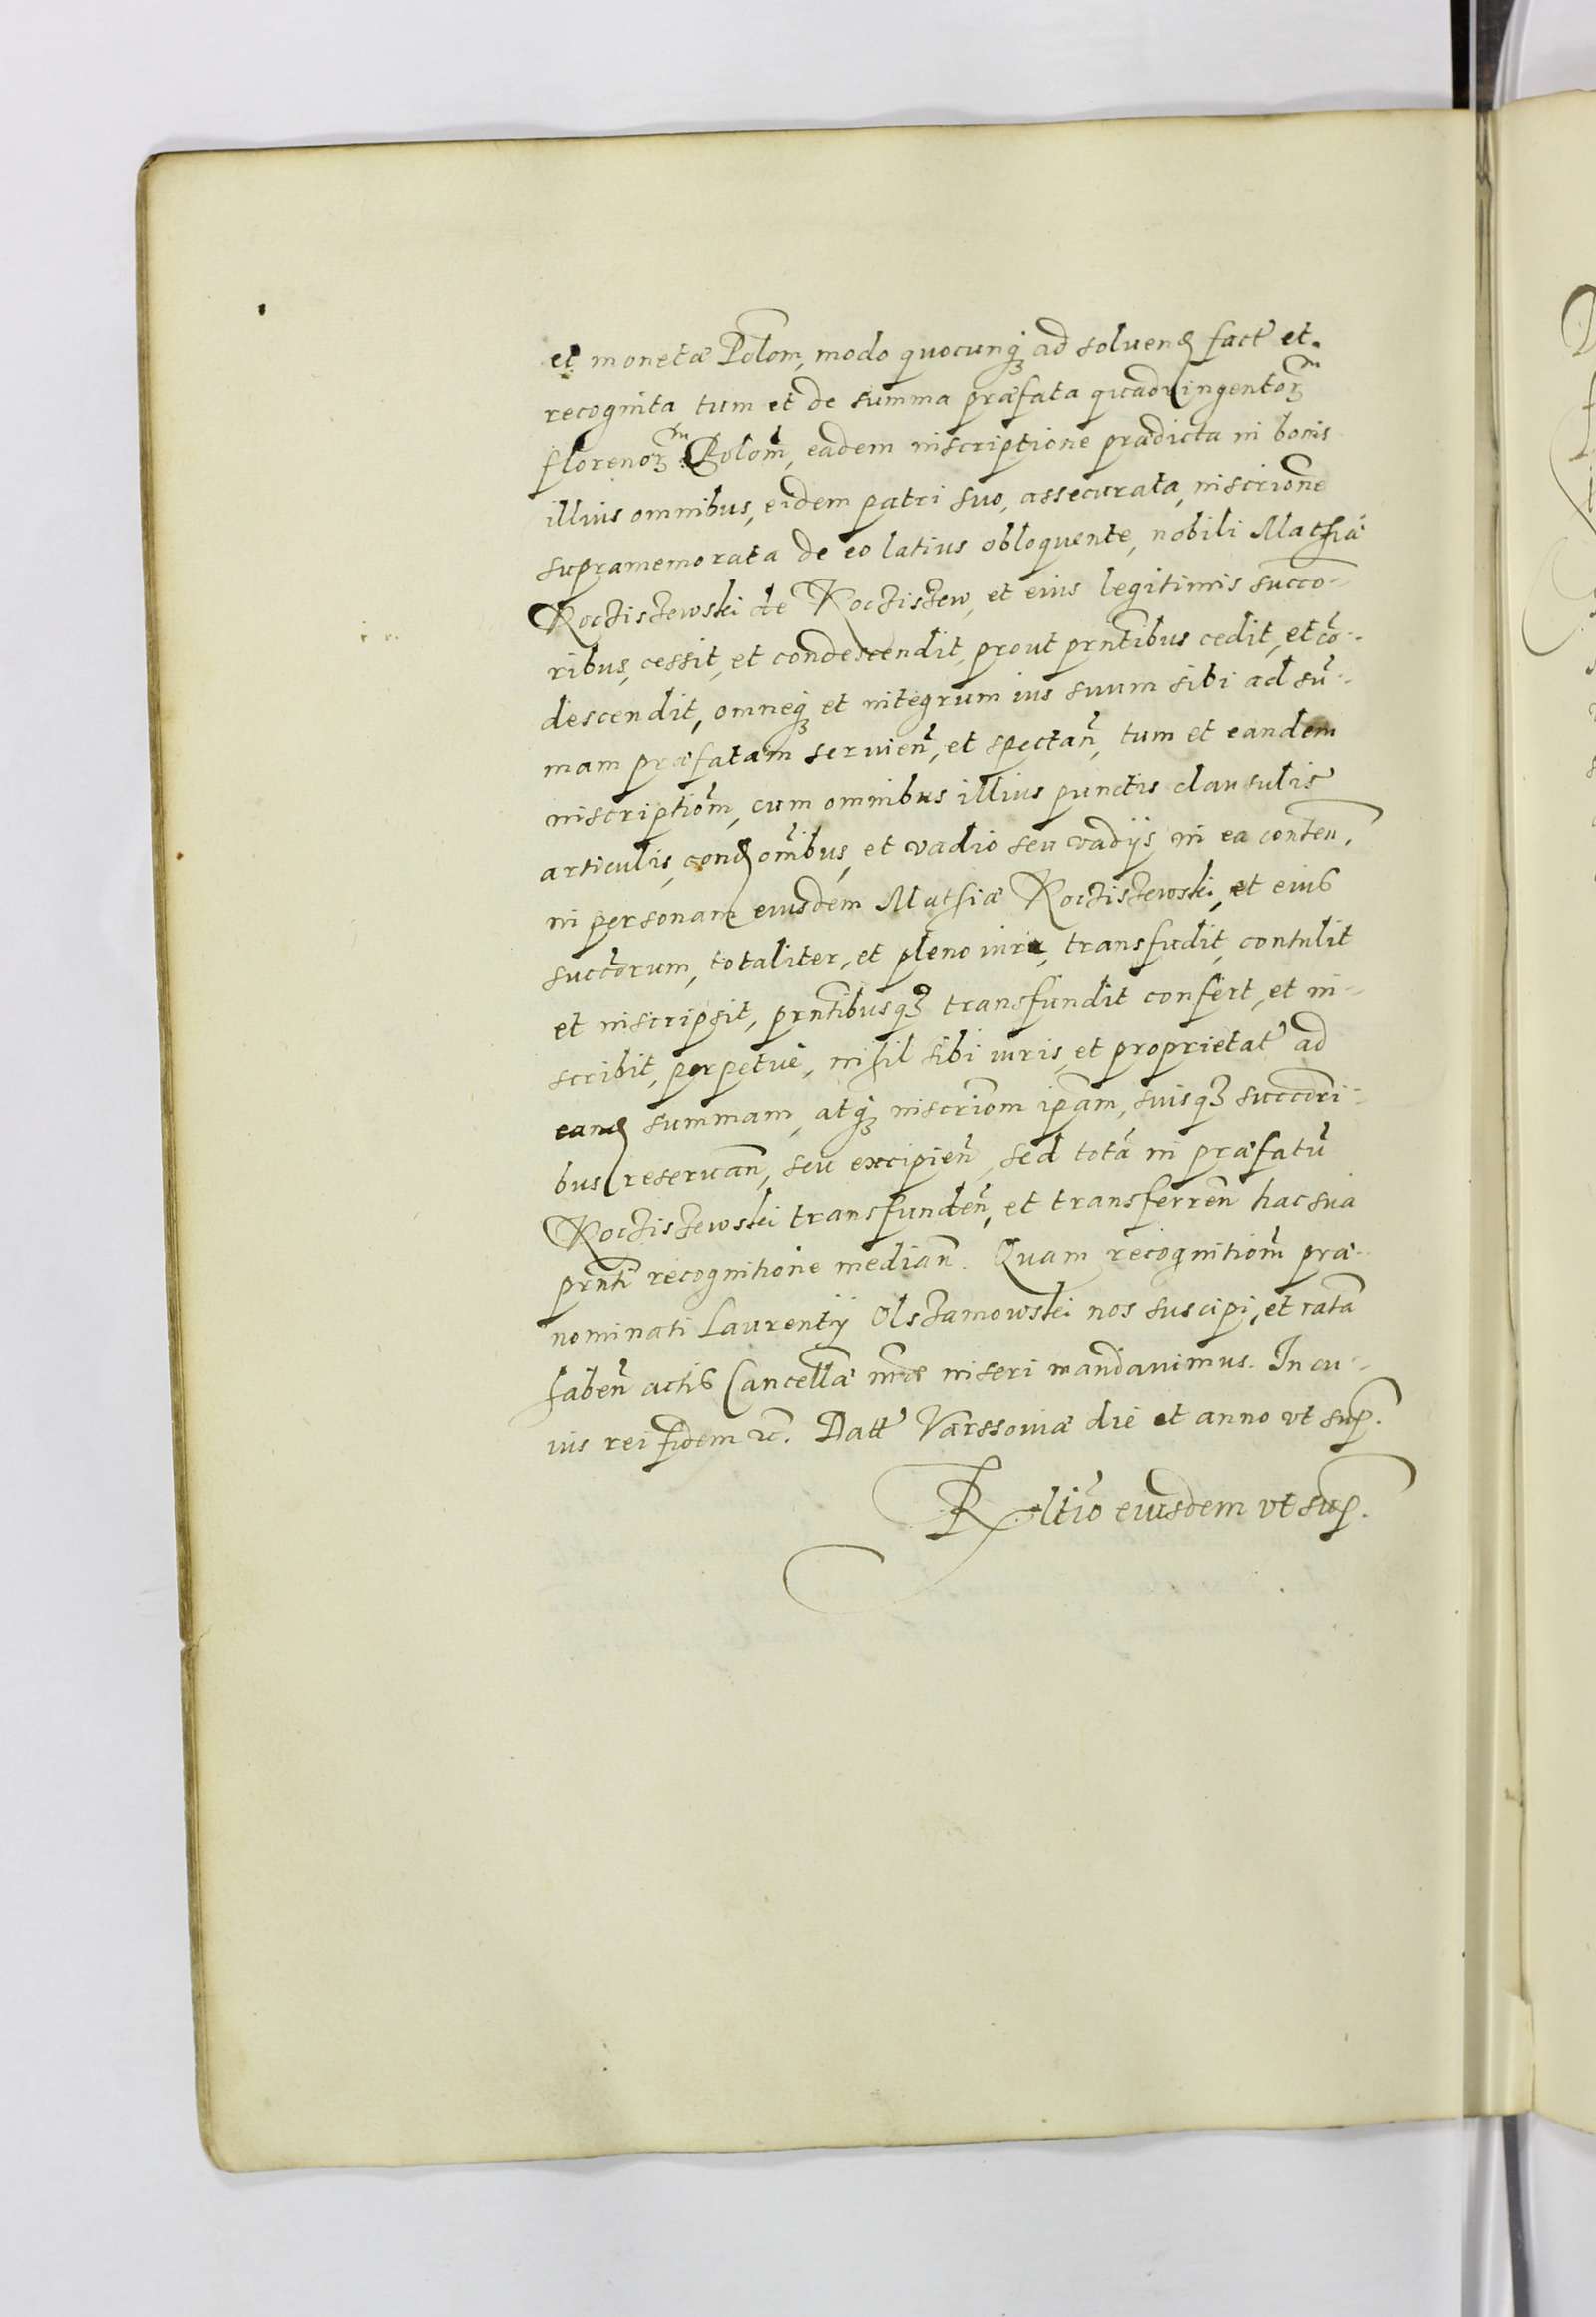 et monetæ Polom̃, modo quocunqꝫ ad soluend fact̃ et
recognita tum et de summa præfata quadringentoꝝm
florenoꝝm Polom̃, eadem inscriptione prædicta in bonis
illius omnibus, eidem patri suo, assecurata, inscrion̄e
supramemorata de eo latius obloquente, nobili Mathiæ
Rocziszewski de Rocziszew, et eius legitimis succo-
ribus, cessit, et condescendit, prout prn̄tibus cedit, et cō-
descendit, omneqꝫ et integrum ius suum sibi ad sū-
mam præfatam seruien̄, et spectan̄, tum et eandem
inscriptiom̄, cum omnibus illius punctis clausulis
articulis, condom̄ibus, et vadio seu vadijs in ea conten̄,
in personam eiusdem Mathiæ Rocziszewski, et eius
succōrum, totaliter, et pleno iure, transfudit, contulit
et inscripsit, prn̄tibusqꝫ transfundit confert, et in-
scribit, perpetue, nihil sibi iuris, et proprietat̃ ad
eand summam, atqꝫ inscriom̄ ipām, suisqꝫ succōri-
bus reseruan̄, seu excipien̄, sed totā in præfatū
Rocziszewski transfunden̄, et transferren̄ hac sua
prn̄ti recognitione median̄. Quam recognitiom̄ præ-
nominati Laurentij Olszamowski nos suscipi, et ratā
haben̄ actis Cancellā nr̄æ inseri mandauimus. In cu-
ius rei fidem ꝛc. Datt̃ Varssouiæ die et anno vt sup.
Reltio eiusdem vt sup.